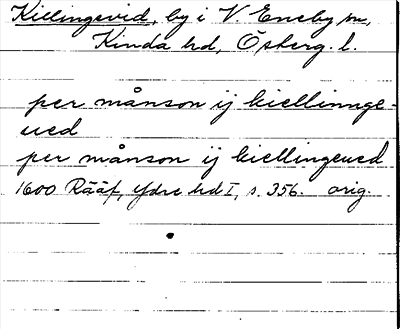 Killingevid, by i V Eneby sn,
Kinda hd, Österg. l.
per månson ij kiellinnge-
ued
per månson ij kiellingeued
1600 Rääf, Ydre hd I, s. 356. orig.